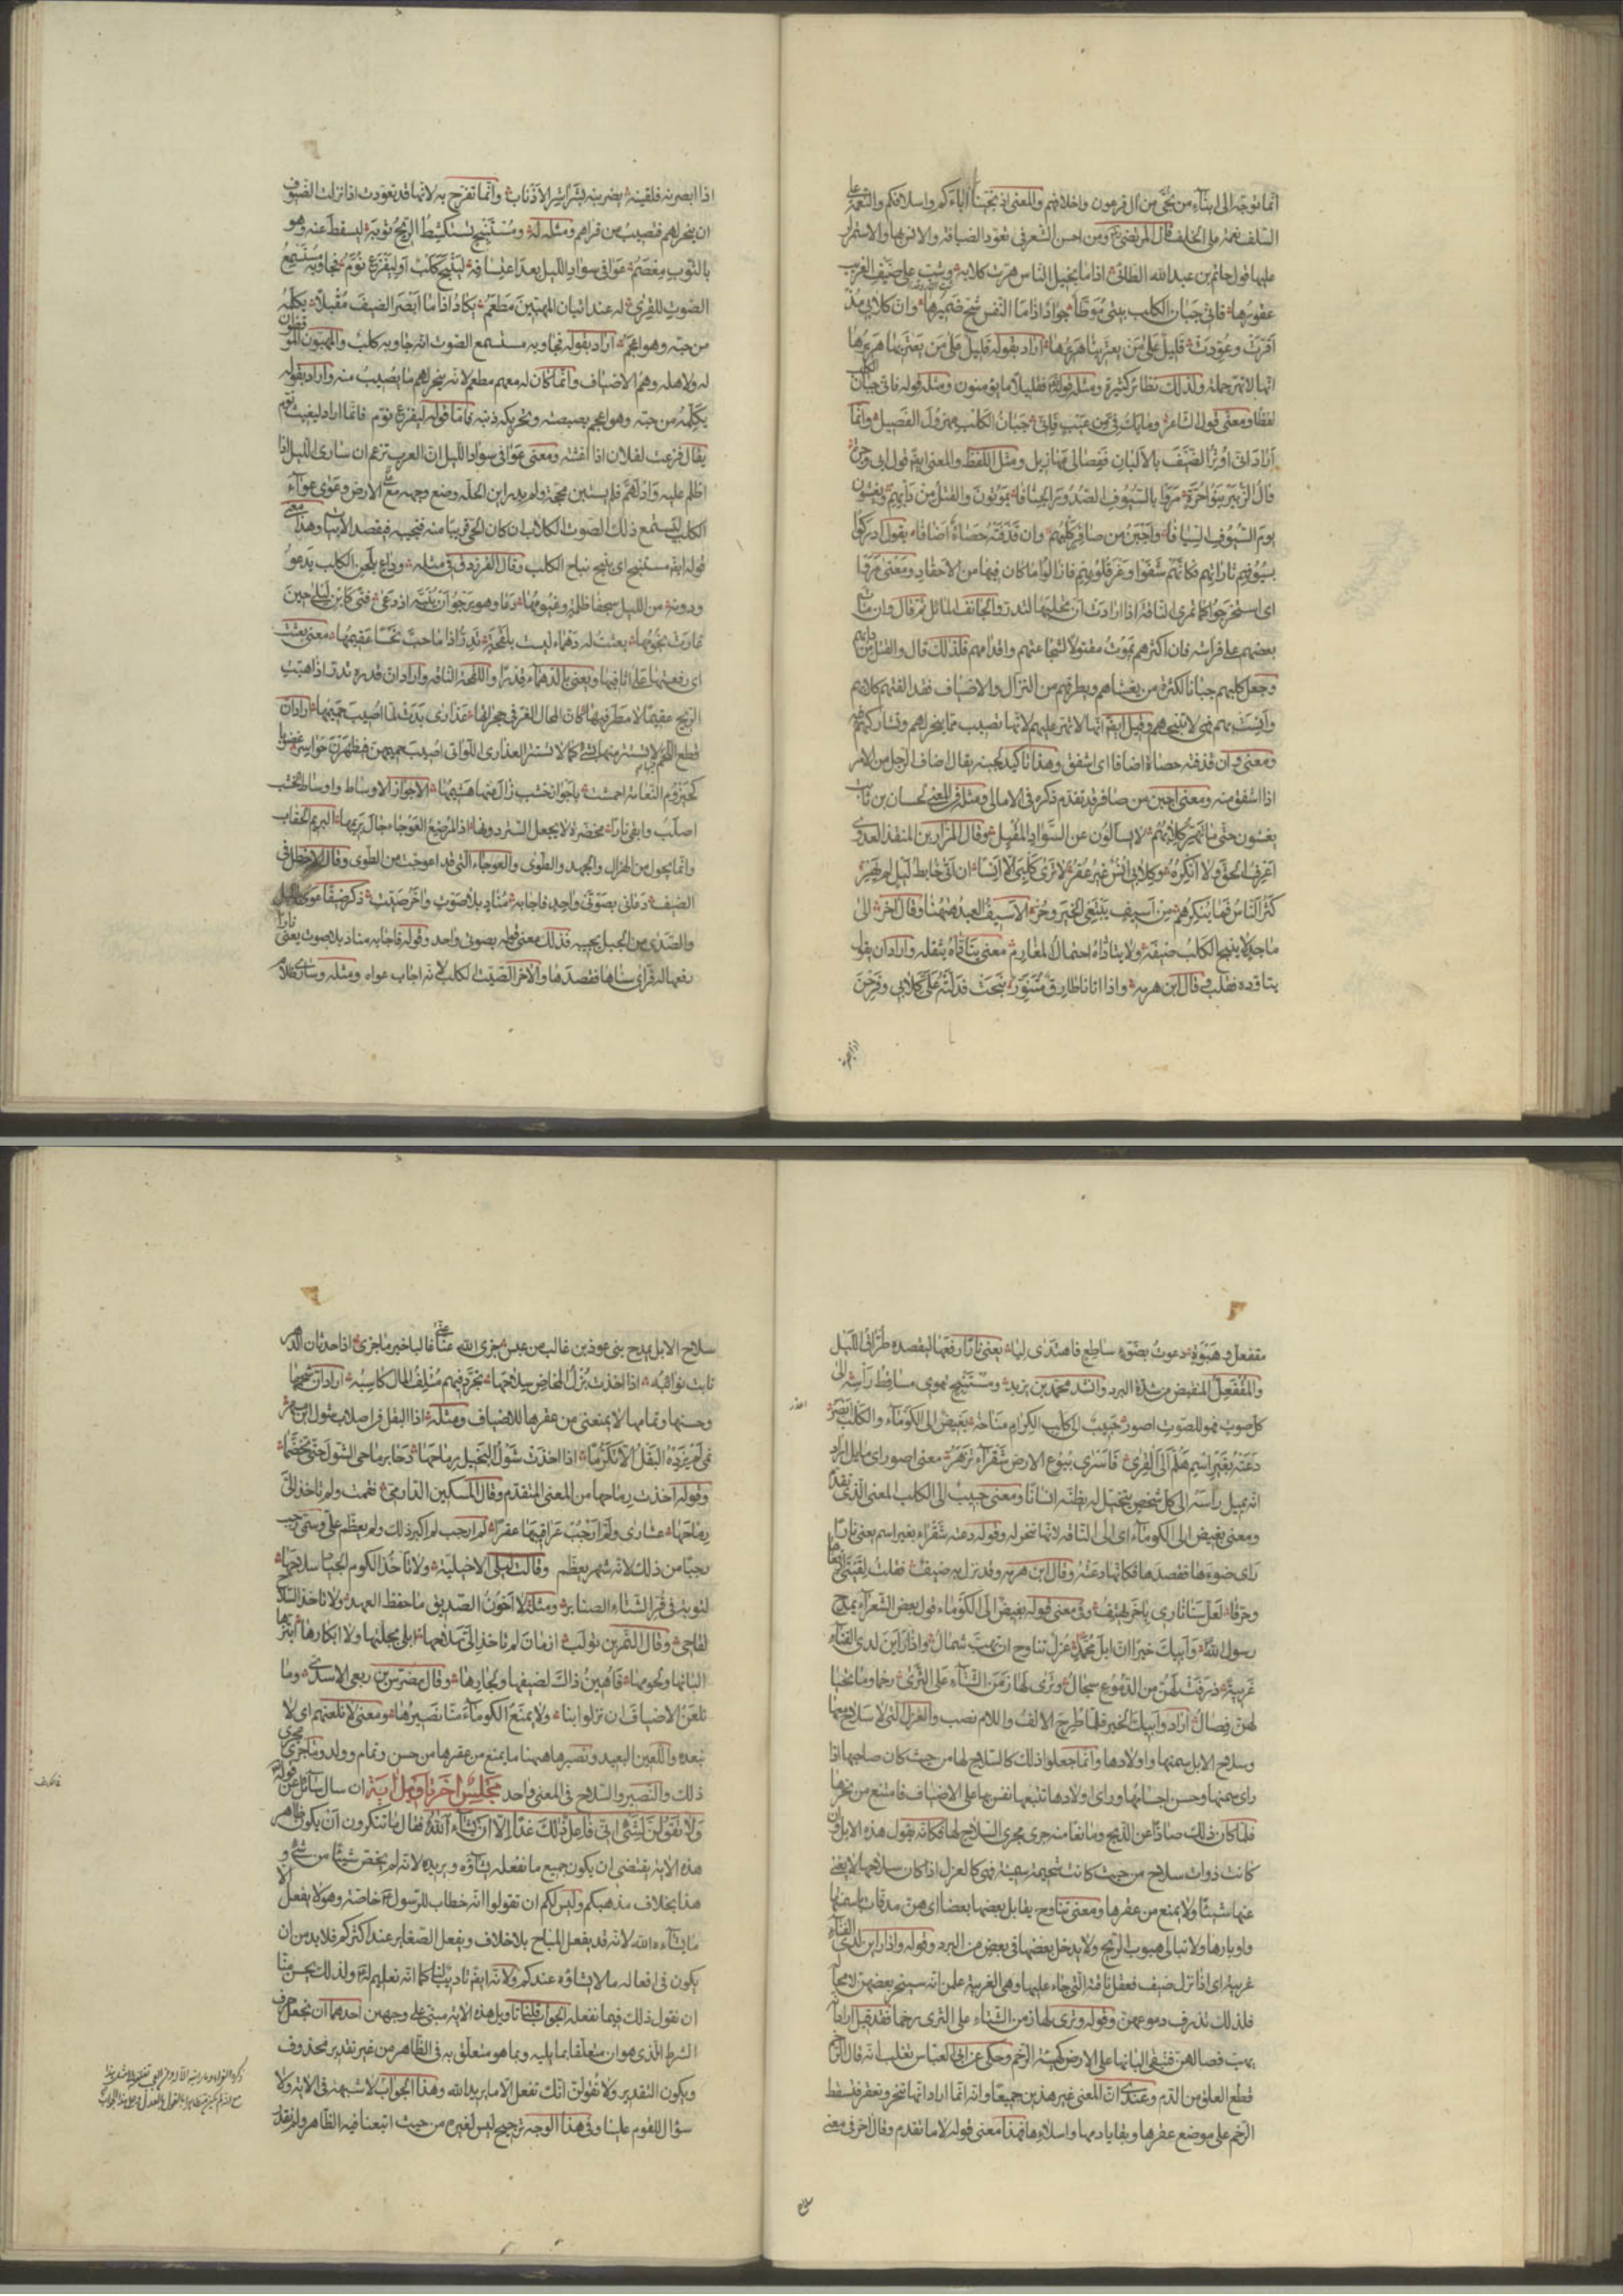 انما توجه الى ابناء من نجى من آل فرعون واخلافهم والمعنى اذ نجينا اباءكم واسلافكم والنعمة على
السلف نعمة على الخلف قال المرتضى ومن احسن الشعر فى تعود الضيافة والانس بها والاستمرار
عليها قول حاتم بن عبد الله الطائى اذا ما بخيل الناس هرت كلابه وشق على ضيف الغريب
عقورها فانى جبان الكلب بيتى موطأ جواد اذا ما النفس شح ضميرها وان كلابى مذ
اقرت وعودت قليل على من يعترينا هريرها اراد بقوله قليل على من يعترينا هريرها
انها لا تهر جملة ولذلك نظائر كثيرة ومثله قوله فقليلا ما يؤمنون ومثله قوله فانى جبان الكلب
لفظا ومعنى قول الشاعر وما يك فى من عيب فانى جبان الكلب مهزول الفصيل وانما
اراد انى اوثر الضيف بالالبان ففصالى مهازيل ومثل اللفظ والمعنى ايضا قول ابى وجزة
قال الزبير بنو احرة مروا بالسيوف الصدور الجنافا يموتون والقتل من دابهم ويغشون
يوم السيوف السيافا واجبن من صافر كلبهم وان قذفته حصاة اضافا يقول ادركوا
بسيوفهم ثاراتهم فكانهم شفوا وغر قلوبهم فازالوا ما كان فيها من الاحقاد ومعنى مروا
اى استخرجوا كما تمرى الناقة اذا اردت ان تحلبها لتدر والجانف المائل ثم قال وان مات
بعضهم على فراشه فان اكثرهم يموت مقتولا لشجاعتهم واقدامهم فلذلك قال والقتل من دابهم
وجعل كلبهم جبانا لكثرة من يغشاهم ويطرقهم من النزال والاضياف فقد الفتهم كلابهم
وانست بهم فهى لا تنبحهم وقيل ايضا انها لا تهر عليهم لانها تصيب مما ينحر لهم وتشاركهم فيه
ومعنى وان قذفته حصاة اضافا اى اشفق وهذا تاكيد لجبنه يقال اضاف الرجل من الامر
اذا اشفق منه ومعنى اجبن من صافر قد تقدم ذكره فى الامالى ومثله فى المعنى لحسان بن ثابت
يغشون حتى ما تهر كلابهم لا يسألون عن السواد المقبل وقال المرار بن المنقذ العدوى
اعرف الحق ولا انكره وكلابى انس غير عقر لا ترى كلبى الا انسا ان اتى خابط ليل لم يهر
كثر الناس فما ينكرهم من اسيف يبتغى الخير وحر الاسيف العبد ههنا وقال اخر الى
ماجد لا ينبح الكلب ضيفه ولا يتاداه احتمال المغارم معنى يتاداه يثقله واراد ان يقول
يتاوده فقلب وقال ابن هرمة واذا اتانا طارق متنور نبحت فدلته على كلابى وفرحن
اذا ابصرنه
اذا ابصرنه فلقينه يضربنه بشراشر الاذناب وانما تفرح به لانها قد تعودت اذا نزلت الضيوف
ان ينحر لهم فتصيب من قراهم ومثله له ومستنبح تستكشط الريح ثوبه ليسقط عنه وهو
بالثوب معصم عوى فى سواد الليل بعد اعتسافه لينبح كلب او ليفزع نوم فجاوبه مستمع
الصوت للقرى له عند اتيان المهبين مطعم يكاد اذا ما ابصر الضيف مقبلا يكلمه
من حبه وهو اعجم اراد بقوله فجاوبه مستمع الصوت انه جاوبه كلب والمهبون الموقظون
له ولاهله وهم الاضياف وانما كان له معهم مطعم لانه ينحر لهم ما يصيب منه واراد بقوله
يكلمه من حبه وهو اعجم بصبصته وتحريكه ذنبه فاما قوله ليفزع نوم فانما اراد ليغيث نوم
يقال فزعت لفلان اذا اغثته ومعنى عوى فى سواد الليل ان العرب تزعم ان سارى الليل اذا
اظلم عليه وادلهم فلم يستبن محجة ولم يدر اين الحلة وضع وجهه مع الارض وعوى عواء
الكلب لتسمع ذلك الصوت الكلاب ان كان الحى قريبا منه فتجيبه فيقصد الابيات وهذا معنى
قوله ايضا مستنبح اى ينبح نباح الكلب وقال الفرزدق فى مثله وداع بلحن الكلب يدعو
ودونه من الليل سجفا ظلمة وغيومها دعا وهو يرجو ان ينبه اذ دعى فتى كابن ليلى حين
غارت نجومها بعثت له دهماء ليست بلقحة تدر اذا ما هب نحسا عقيمها معنى بعثت
اى رفعتها على اثافيها ويعنى بالدهماء قدرا واللقحة الناقة واراد ان قدره تدر اذا هبت
الريح عقيما لا مطر فيها كان المحال الغر فى حجراتها عذارى بدت لما اصيب حميمها اراد ان
قطع اللحم لا يستتر منها بشئ كما لا تستتر العذارى اللواتى اصيب حميمهن فظهرن حواسر غضوبا
كحيزوم النعامة احمشت باجواز خشب زال عنها هشيمها الاجواز الاوساط واوساط الخشب
اصلب وابقى نارا محضرة لا يجعل الستر دونها اذا المرضع العوجاء جال بريمها البريم الحقاب
وانما يجول من الهزال والجهد والطوى والعوجاء التى قد اعوجت من الطوى وقال الاخطل فى
الضيف دعانى بصوتى واحد فاجابه مناد بلا صوت واخر صيت ذكر ضيفا عوى بالليل
والصدى من الجبل يجيبه فذلك معنى قوله بصوتى واحد وقوله فاجابه مناد بلا صوت يعنى نارا
رفعها له فراى سناها فقصدها والاخر الصيت الكلب لانه اجاب عواه ومثله وسارى ظلام
مقفعل وهبوة دعوت بضوء ساطع فاهتدى ليا يعنى نارا رفعها ليقصده طراق الليل
والمقفعل المنقبض من شدة البرد وانشد محمد بن يزيد ومستنبح تهوى مساقط راسه الى
كل صوت فهو للصوت اصور حبيب الى كلب الكرام مناخه بغيض الى الكوماء والكلب ابصر
دعته بغير اسم هلم الى القرى فاسرى يبوع الارض شقراء تزهر معنى اصور اى مايل اراد
انه يميل راسه الى كل شخص يتخيل له يظنه انسانا ومعنى حبيب الى الكلب المعنى الذى تقدم
ومعنى بغيض الى الكوماء اى الى الناقة لانها تنحر له وقوله دعته شقراء بغير اسم يعنى نارا
راى ضوءها فقصدها فكانها دعته وقال ابن هرمة وقد نزل به ضيف فقلت لقينى ارفعاها
وحرقا لعل سنا نارى باخر تهتف وفى معنى قوله بغيض الى الكوماء قول بعض الشعراء يمدح
رسول الله وابيك خيرا ان ابل محمد عزل تناوح ان تهب شمال واذا راين لدى الفناء
غريبة ذرفت لهن من الدموع سجال وترى لها زمن الشتاء على الثرى رخما وما تحيا
لهن فصال اراد وابيك الخير فلما طرح الالف واللام نصب والعزل التى لا سلاح معها
وسلاح الابل سمنها واولادها وانما جعلوا ذلك كالسلاح لها من حيث كان صاحبها اذا
راى سمنها وحسن اجسامها وراى اولادها تتبعها نفس بها على الاضياف فامتنع من نحرها
فلما كان ذلك صادا عن الذبح ومانعا منه جرى مجرى السلاح لها فكانه يقول هذه الابل وان
كانت ذوات سلاح من حيث كانت شحيمة سمينة فهى كالعزل اذ كان سلاحها لا يغنى
عنها شيئا ولا يمنع من عقرها ومعنى تناوح يقابل بعضها بعضا اى هن مدفئات باسنمتها
واوبارها ولا تبالى هبوب الريح ولا يدخل بعضها فى بعض من البرد وقوله واذا راين لدى الفناء
غريبة اى اذا نزل ضيف فعقل ناقته التى جاء عليها وهى الغريبة علمن انه سينحر بعضهن لا محالة
فلذلك تذرف دموعهن وقوله وترى لها زمن الشتاء على الثرى رخما فقد قيل اراد انه
يهب فصالهن فتبقى البانها على الارض كهيئة الرخم وحكى عن ابى العباس ثعلب انه قال الرخم
قطع العلق من الدم وعندى ان المعنى غير هذين جميعا وانه انما اراد انها تنحر وتعقر فتسقط
الرخم على موضع عقرها وبقايا دمها واسلائها فهذا معنى قوله لا ما تقدم وقال اخر فى معنى
سلاح
سلاح الابل يمدح بنى عوذ بن غالب من عبس جزى الله عنا غالبا خير ما جزى اذا حدثان الدهر
نابت نوائبه اذا اخذت بزل المخاض سلاحها تجرد فيهم متلف المال كاسبه اراد ان شحمها
وحسنها وتمامها لا يمنعنى من عقرها للاضياف ومثله اذا البقل فى اصلاب شول ابن مسهر
نمى لم يزده البقل الا تكرما اذا اخذت شول البخيل رماحها دحا برماحى الشول حتى تحطما
وقوله اخذت رماحها من المعنى المتقدم وقال المسكين الدارمى فقمت ولم تاخذ الى
رماحها عشارى ولم ارجب عراقيبها عقرا لم ارجب لم اكبر ذلك ولم يعظم على وسمى رجب
رجبا من ذلك لانه شهر يعظم وقالت ليلى الاخيلية ولا تاخذ الكوم الجلاد سلاحها
لتوبة فى قر الشتاء الصنابر ومثله لا اخون الصديق ما حفظ العهد ولا تاخذ السلاح
لقاحى وقال النمر بن تولب ازمان لم تاخذ الى سلاحها ابلى بجلتها ولا ابكارها ابتزها
البانها ولحومها فاهين ذاك لضيفها ولجارها وقال مضرس بن ربعى الاسدى وما
نلعن الاضياف ان نزلوا بنا ولا يمنع الكوماء منا نصيرها ومعنى لا نلعنهم اى لا
نبعدهم واللعين البعيد ونصيرها ههنا ما يمنع من عقرها من حسن وتمام وولد وما جرى مجرى
ذلك والنصير والسلاح فى المعنى واحد مجلس اخر تاويل اية ان سال سائل عن قوله
ولا تقولن لشئ انى فاعل ذلك غدا الا ان يشاء الله فقال ما تنكرون ان يكون ظاهر
هذه الاية يقتضى ان يكون جميع ما نفعله يشاؤه ويريده لانه لم يخص شيئا من شئ و
هذا بخلاف مذهبكم وليس لكم ان تقولوا انه خطاب للرسول خاصة وهو لا يفعل الا
ما يشاءه الله لانه قد يفعل المباح بلا خلاف ويفعل الصغاير عند اكثركم فلا بد من ان
يكون فى افعاله ما لا يشاؤه عندكم ولانه ايضا تاديب لنا كما انه تعليم له ولذلك يحسن منا
ان نقول ذلك فيما نفعله الجواب قلنا تاويل هذه الاية مبنى على وجهين احدهما ان نجعل حرف
الشرط الذى هو ان متعلقا بما يليه وبما هو متعلق به فى الظاهر من غير تقدير محذوف
ويكون التقدير ولا تقولن انك تفعل الا ما يريد الله وهذا الجواب لا شبهة فى الاية ولا
سؤال للقوم علينا وفى هذا الوجه ترجيح ليس لغيره من حيث اتبعنا فيه الظاهر ولم نقدر